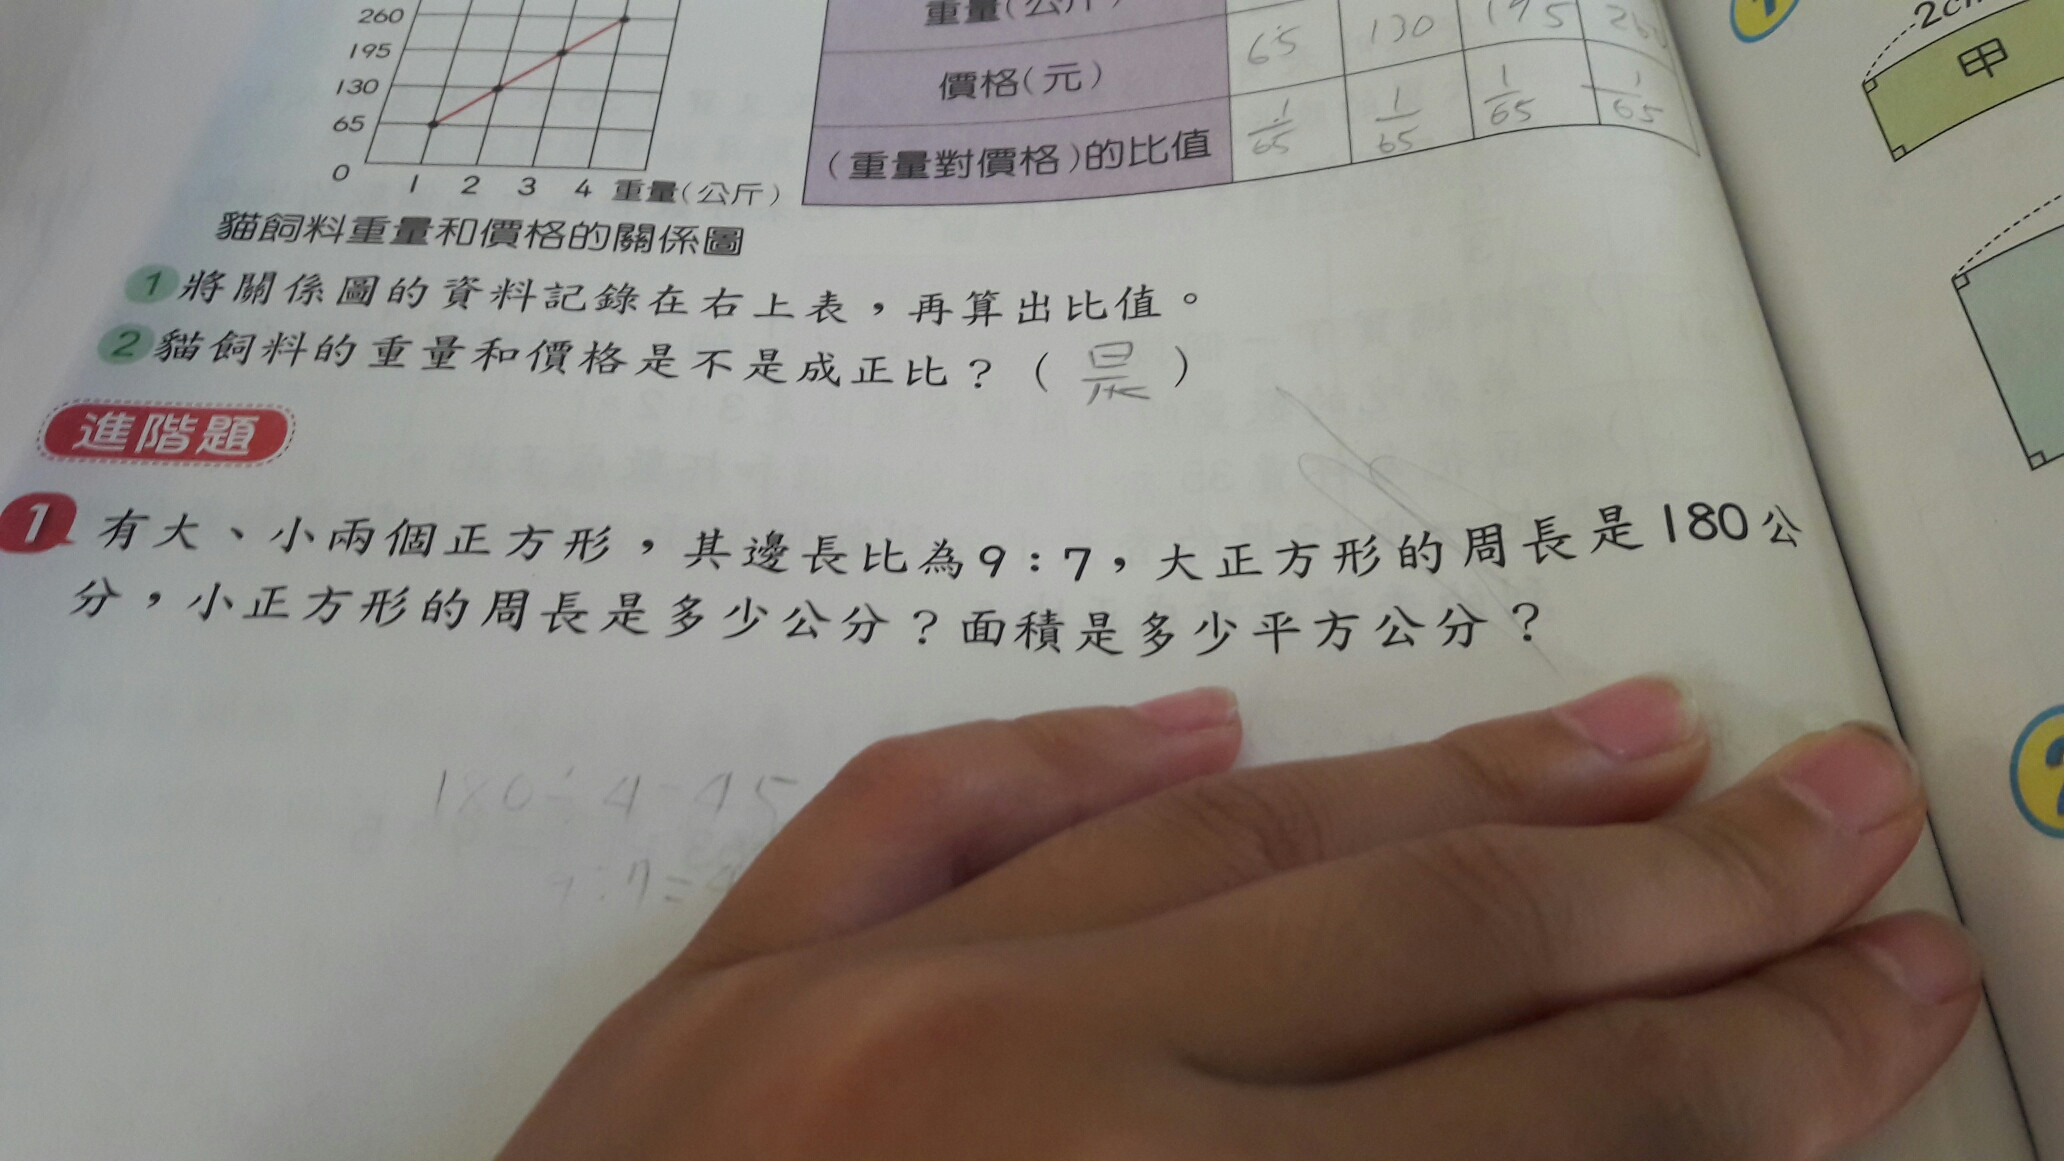 260
195
130
65
0
1 2 3 4 重量(公斤)
貓飼料重量和價格的關係圖
重量(公斤)
價格(元) 65 130 195 260
(重量對價格)的比值 1/65 1/65 1/65 1/65
1 將關係圖的資料記錄在右上表，再算出比值。
2 貓飼料的重量和價格是不是成正比？( 是 )
進階題
1 有大、小兩個正方形，其邊長比為9：7，大正方形的周長是180公
分，小正方形的周長是多少公分？面積是多少平方公分？
180÷4=45
:7=4
2cm
甲